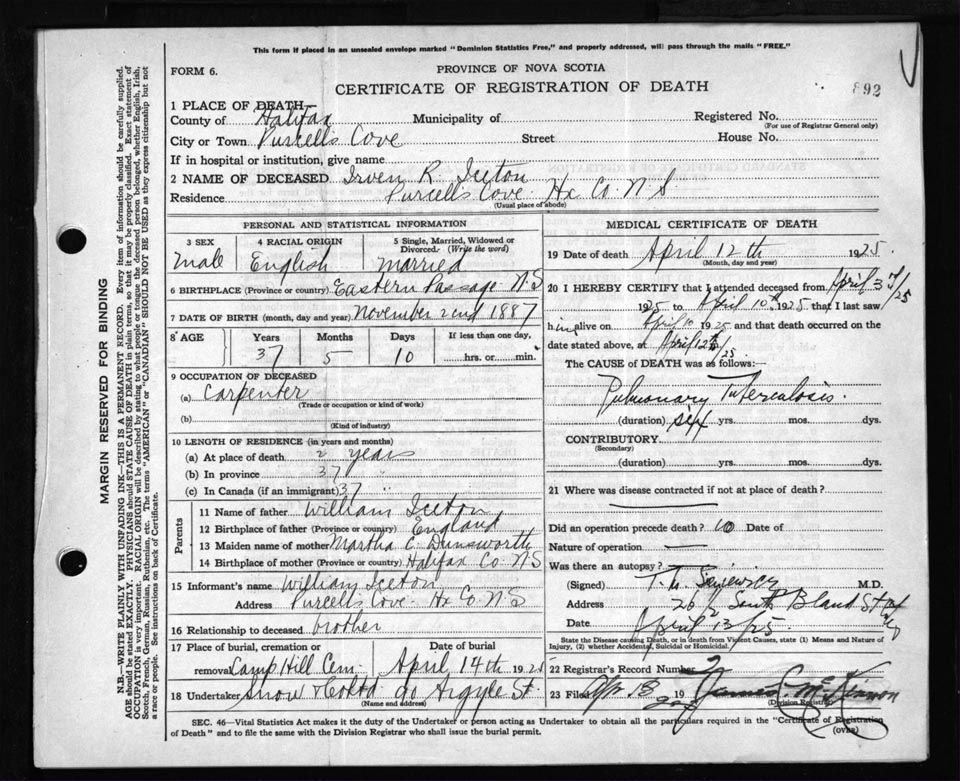 This form if placed in an unsealed envelope marked "Dominion Statistics Free," and properly addressed, will pass through the mails "FREE."
FORM 6.
PROVINCE OF NOVA SCOTIA
CERTIFICATE OF REGISTRATION OF DEATH
892
1 PLACE OF DEATH—
County of Halifax Municipality of Registered No.
(For use of Registrar General only)
City or Town Purcell's Cove Street House No.
If in hospital or institution, give name
2 NAME OF DECEASED Irven R. Iceton
Residence Purcell's Cove Hx Co. N.S.
(Usual place of abode)
PERSONAL AND STATISTICAL INFORMATION
3 SEX 4 RACIAL ORIGIN 5 Single, Married, Widowed or Divorced (Write the word)
Male English Married
6 BIRTHPLACE (Province or country) Eastern Passage N.S
7 DATE OF BIRTH (month, day and year) November 22nd 1887
8 AGE Years Months Days If less than one day,
37 5 10 hrs. or min.
9 OCCUPATION OF DECEASED
(a) Carpenter
(Trade or occupation or kind of work)
(b)
(Kind of industry)
10 LENGTH OF RESIDENCE (in years and months)
(a) At place of death 2 years
(b) In province 37 "
(c) In Canada (if an immigrant) 37 "
Parents
11 Name of father William Iceton
12 Birthplace of father (Province or country) England
13 Maiden name of mother Martha C. Dunsworth
14 Birthplace of mother (Province or country) Halifax Co N.S
15 Informant's name William Iceton
Address Purcells Cove Hx Co. N S
16 Relationship to deceased brother
17 Place of burial, cremation or Date of burial
removal Camp Hill Cem. April 14th 1925
18 Undertaker Snow & Co Ltd 90 Argyle St.
(Name and address)
MEDICAL CERTIFICATE OF DEATH
19 Date of death April 12th 1925
(Month, day and year)
20 I HEREBY CERTIFY that I attended deceased from April 3rd/25
1925 to April 10th 1925 that I last saw
him alive on April 10 1925 and that death occurred on the
date stated above, at April 12th/25
The CAUSE OF DEATH was as follows:
Pulmonary Tuberculosis.
(duration) six yrs. mos. dys.
CONTRIBUTORY
(Secondary)
(duration) yrs. mos. dys.
21 Where was disease contracted if not at place of death?
Did an operation precede death? no Date of
Nature of operation —
Was there an autopsy?
(Signed) M.D.
Address South Bland St
Date April 13/25
State the Disease causing Death, or in death from Violent Causes, state (1) Means and Nature of
Injury, (2) whether Accidental, Suicidal or Homicidal.
22 Registrar's Record Number 2
23 Filed Apr 13 19 James C. McKinnon
(Division Registrar)
SEC. 46—Vital Statistics Act makes it the duty of the Undertaker or person acting as Undertaker to obtain all the particulars required in the "Certificate of Registration
of Death" and to file the same with the Division Registrar who shall issue the burial permit.
(OVER)
MARGIN RESERVED FOR BINDING
N.B.—WRITE PLAINLY WITH UNFADING INK—THIS IS A PERMANENT RECORD. Every item of information should be carefully supplied.
AGE should be stated EXACTLY. PHYSICIANS should STATE CAUSE OF DEATH in plain terms, so that it may be properly classified. Exact statement of
OCCUPATION is very important. RACIAL ORIGIN will be described by stating to what people or tongue the deceased person belonged, whether English, Irish,
Scotch, French, German, Russian, Ruthenian, etc. The terms "AMERICAN" or "CANADIAN" SHOULD NOT BE USED as they express citizenship but not
a race or people. See instructions on back of Certificate.